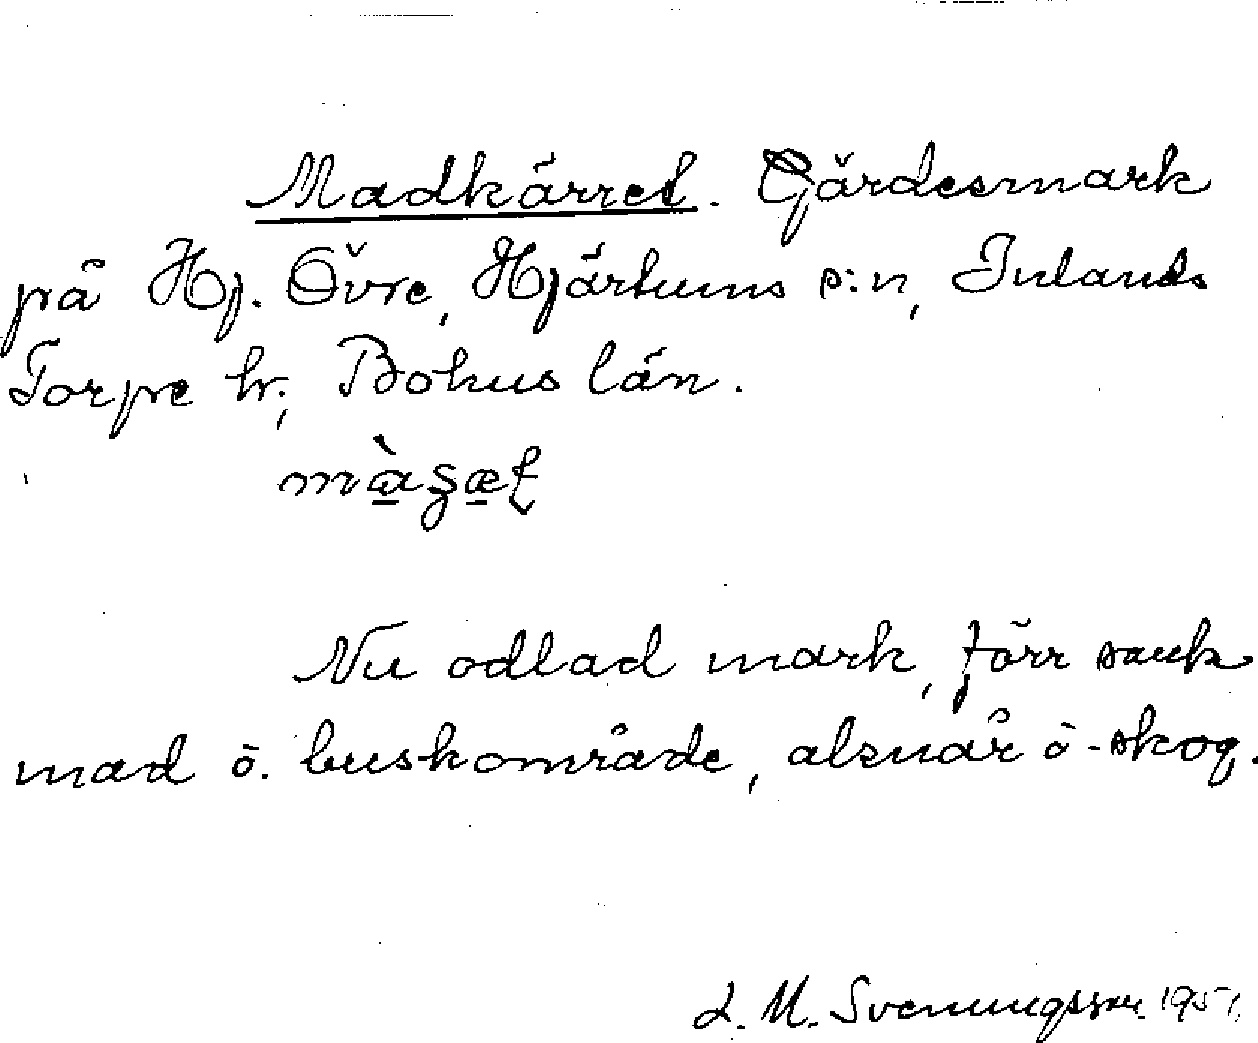 Madkärret. Gärdesmark
på Hj. Övre, Hjärtums s:n, Inlands
Torpe hr, Bohus län.
Nu odlad mark, förr sank
mad o. buskområde, alsnår o-skog.
L. M. Svenungsson 1951.